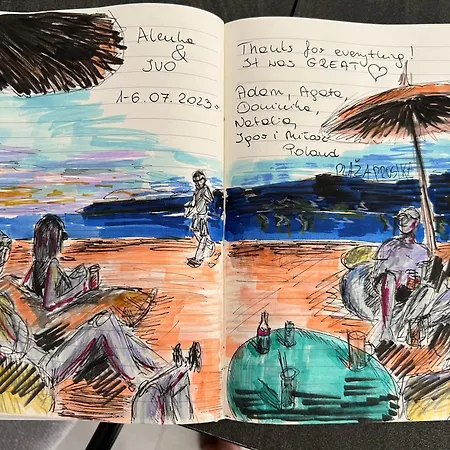 Alenka
&
IVO
1-6.07.2023.
Thanks for everything!
It was GREAT
Adam, Agata,
Dominika,
Natalia,
Igor i Miłosz
Poland